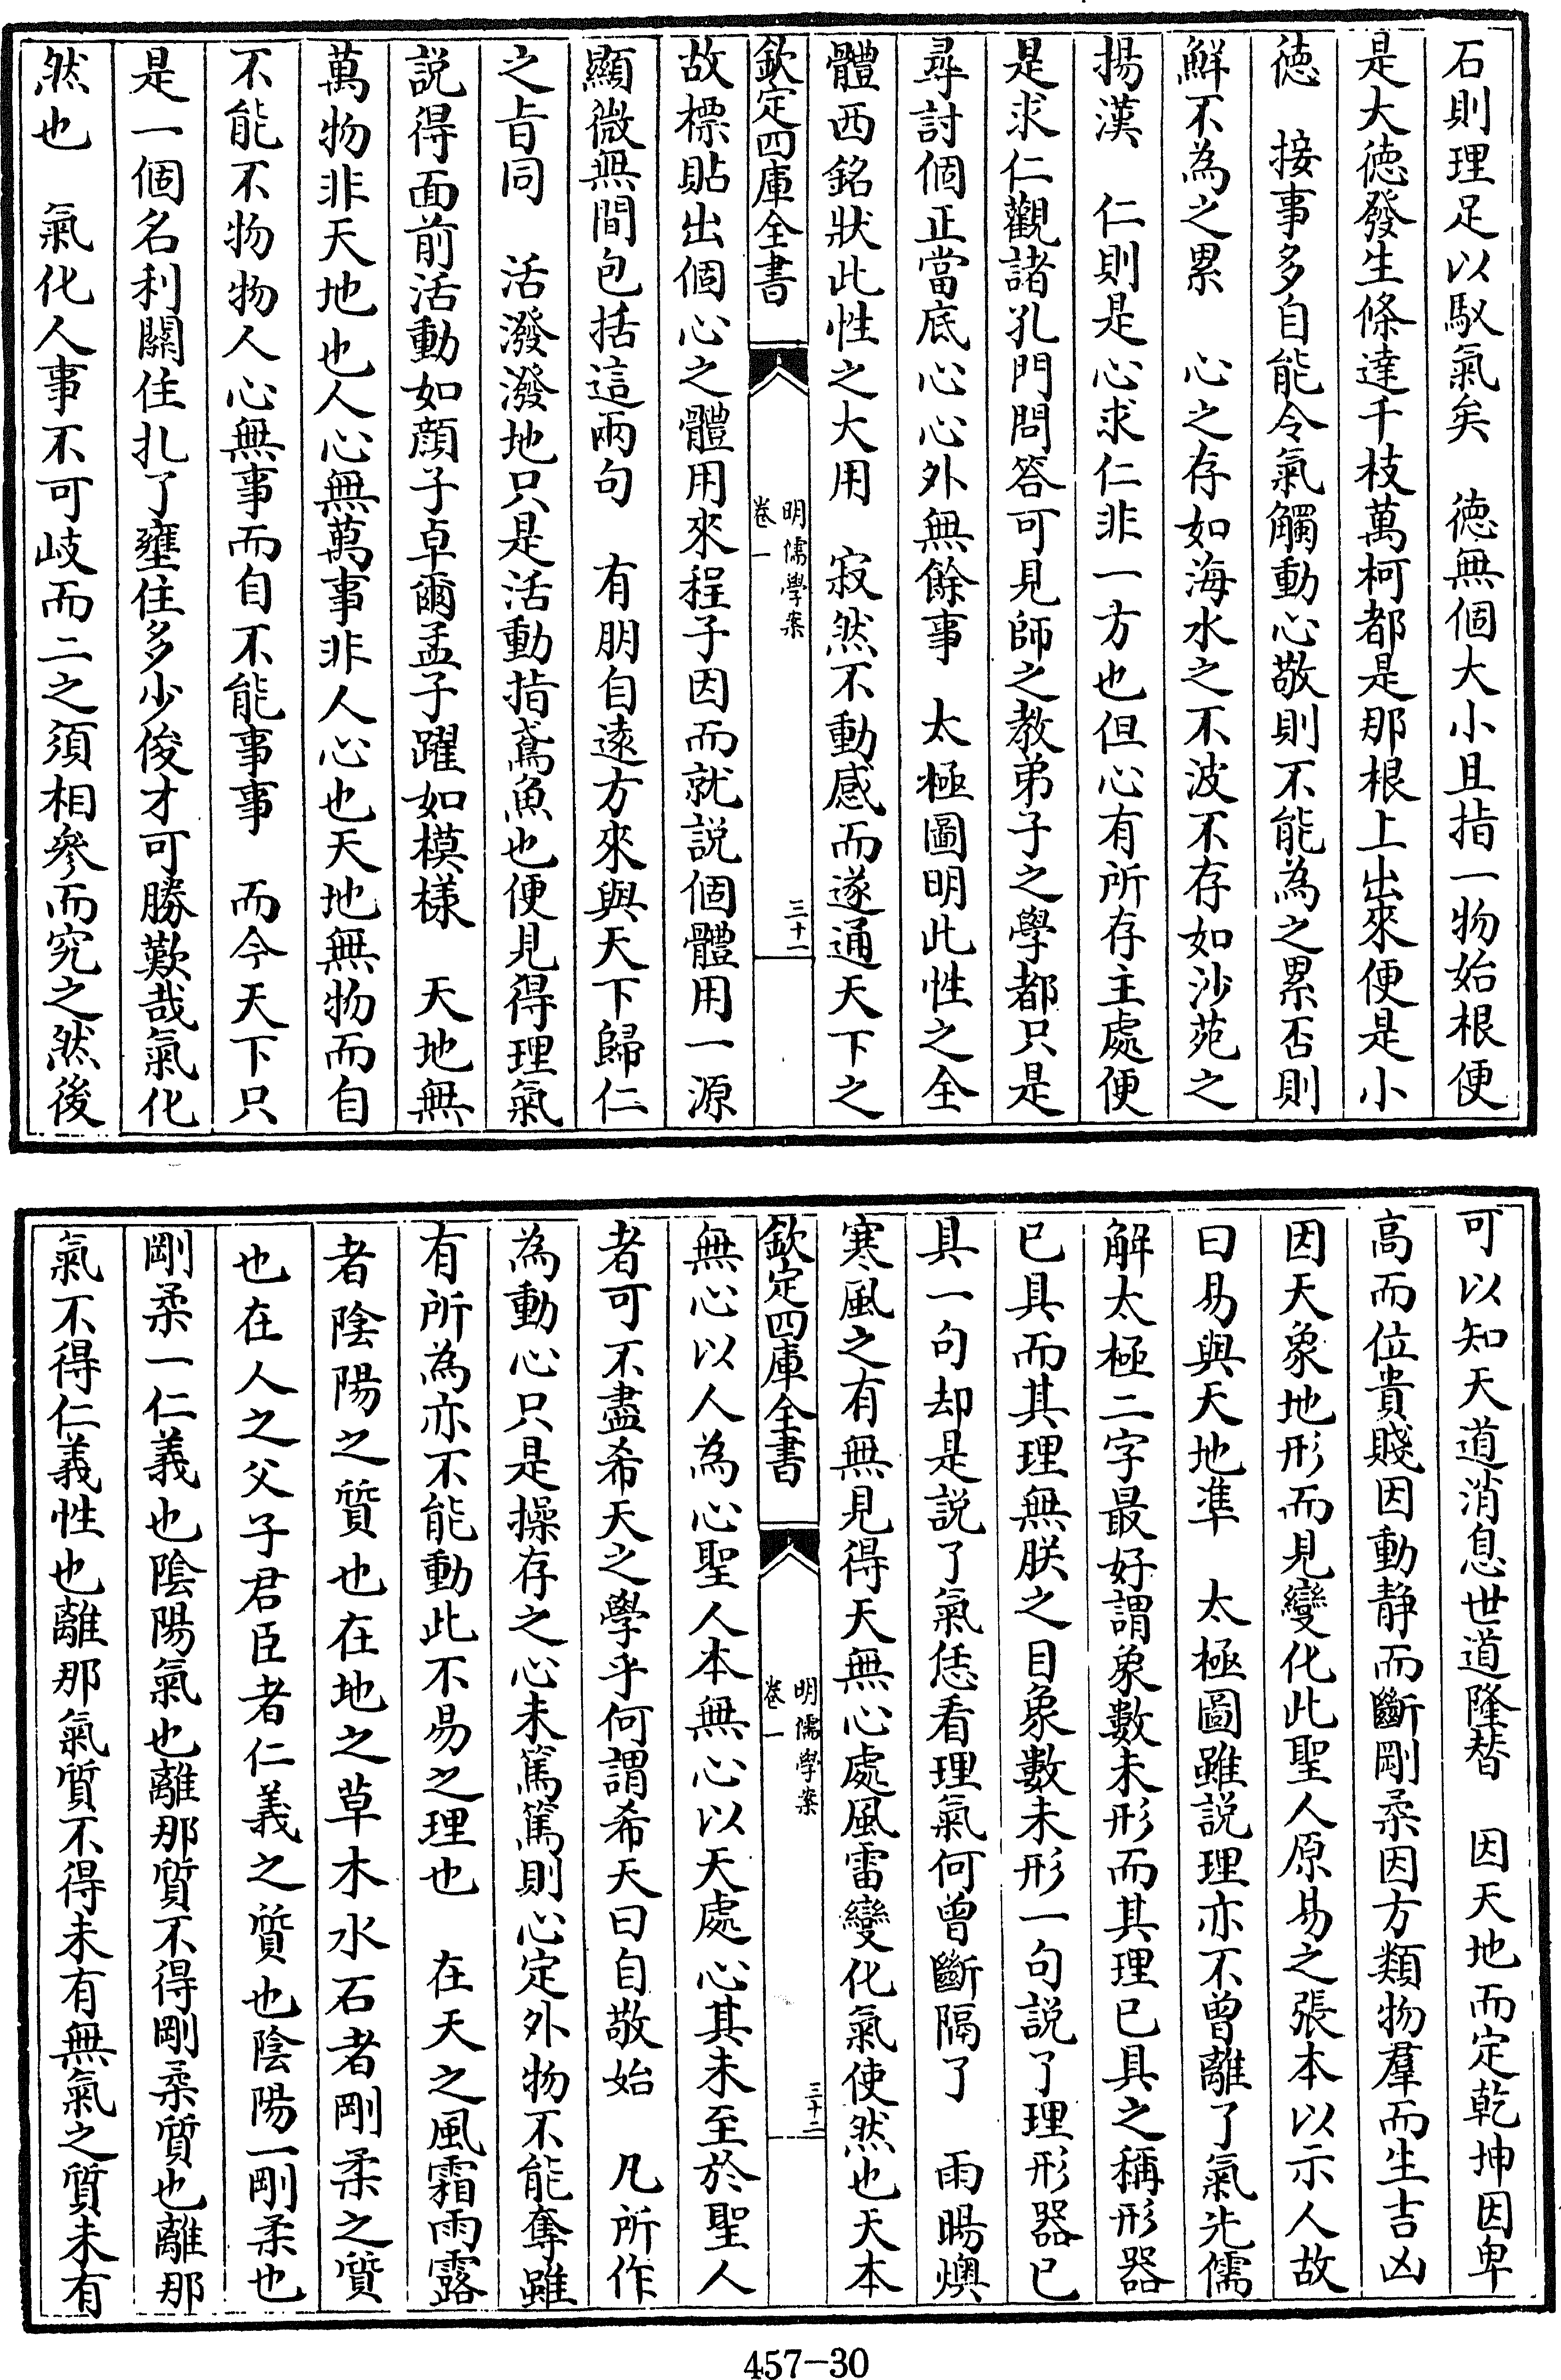 石則理足以馭氣矣　徳無個大小且指一物始根便
是大徳發生條達千枝萬柯都是那根上出來便是小
徳　接事多自能令氣觸動心敬則不能為之累否則
鮮不為之累　心之存如海水之不波不存如沙苑之
揚漢　仁則是心求仁非一方也但心有所存主處便
是求仁觀諸孔門問答可見師之教弟子之學都只是
尋討個正當底心心外無餘事　太極圖明此性之全
體西銘狀此性之大用　寂然不動感而遂通天下之
欽定四庫全書
明儒學案
卷一
三十一
故標貼出個心之體用來程子因而就説個體用一源
顯微無間包括這兩句　有朋自遠方來與天下歸仁
之旨同　活潑潑地只是活動指鳶魚也便見得理氣
説得面前活動如顔子卓爾孟子躍如模様　天地無
萬物非天地也人心無萬事非人心也天地無物而自
不能不物物人心無事而自不能事事　而今天下只
是一個名利關住扎了壅住多少俊才可勝歎哉氣化
然也　氣化人事不可岐而二之須相參而究之然後
可以知天道消息世道隆替　因天地而定乾坤因卑
高而位貴賤因動靜而斷剛柔因方類物羣而生吉凶
因天象地形而見變化此聖人原易之張本以示人故
曰易與天地準　太極圖雖説理亦不曽離了氣先儒
解太極二字最好謂象數未形而其理已具之稱形器
已具而其理無朕之目象數未形一句説了理形器已
具一句却是説了氣恁看理氣何曽斷隔了　雨暘燠
寒風之有無見得天無心處風雷變化氣使然也天本
欽定四庫全書
明儒學案
卷一
三十二
無心以人為心聖人本無心以天處心其未至於聖人
者可不盡希天之學乎何謂希天曰自敬始　凡所作
為動心只是操存之心未篤篤則心定外物不能奪雖
有所為亦不能動此不易之理也　在天之風霜雨露
者陰陽之質也在地之草木水石者剛柔之質
也在人之父子君臣者仁義之質也陰陽一剛柔也
剛柔一仁義也陰陽氣也離那質不得剛柔質也離那
氣不得仁義性也離那氣質不得未有無氣之質未有
457-30